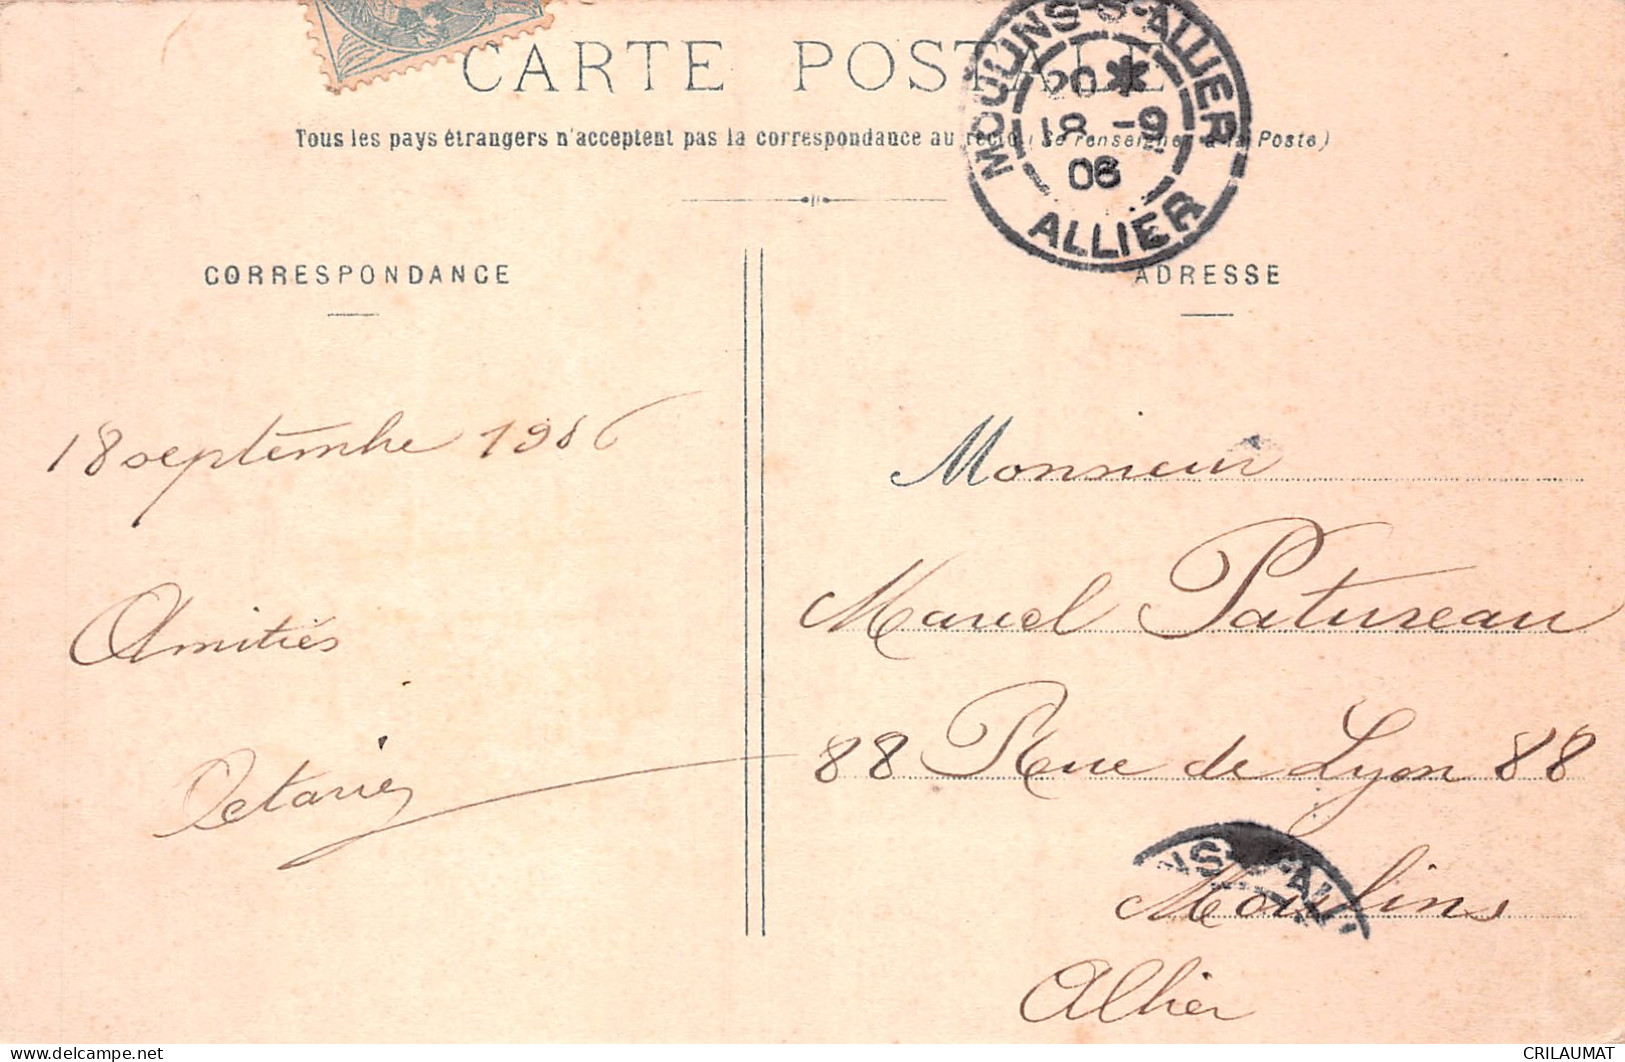 CARTE POSTALE
Tous les pays étrangers n'acceptent pas la correspondance au recto (Se renseigner à la Poste)
MOULINS-S-ALLIER
20*
18 -9
06
ALLIER
CORRESPONDANCE
ADRESSE
18 septembre 1906
Amitiés
Octavie
Monsieur
Marcel Patureau
88 Rue de Lyon 88
Moulins
Allier
NS-S-ALL
CRILAUMAT